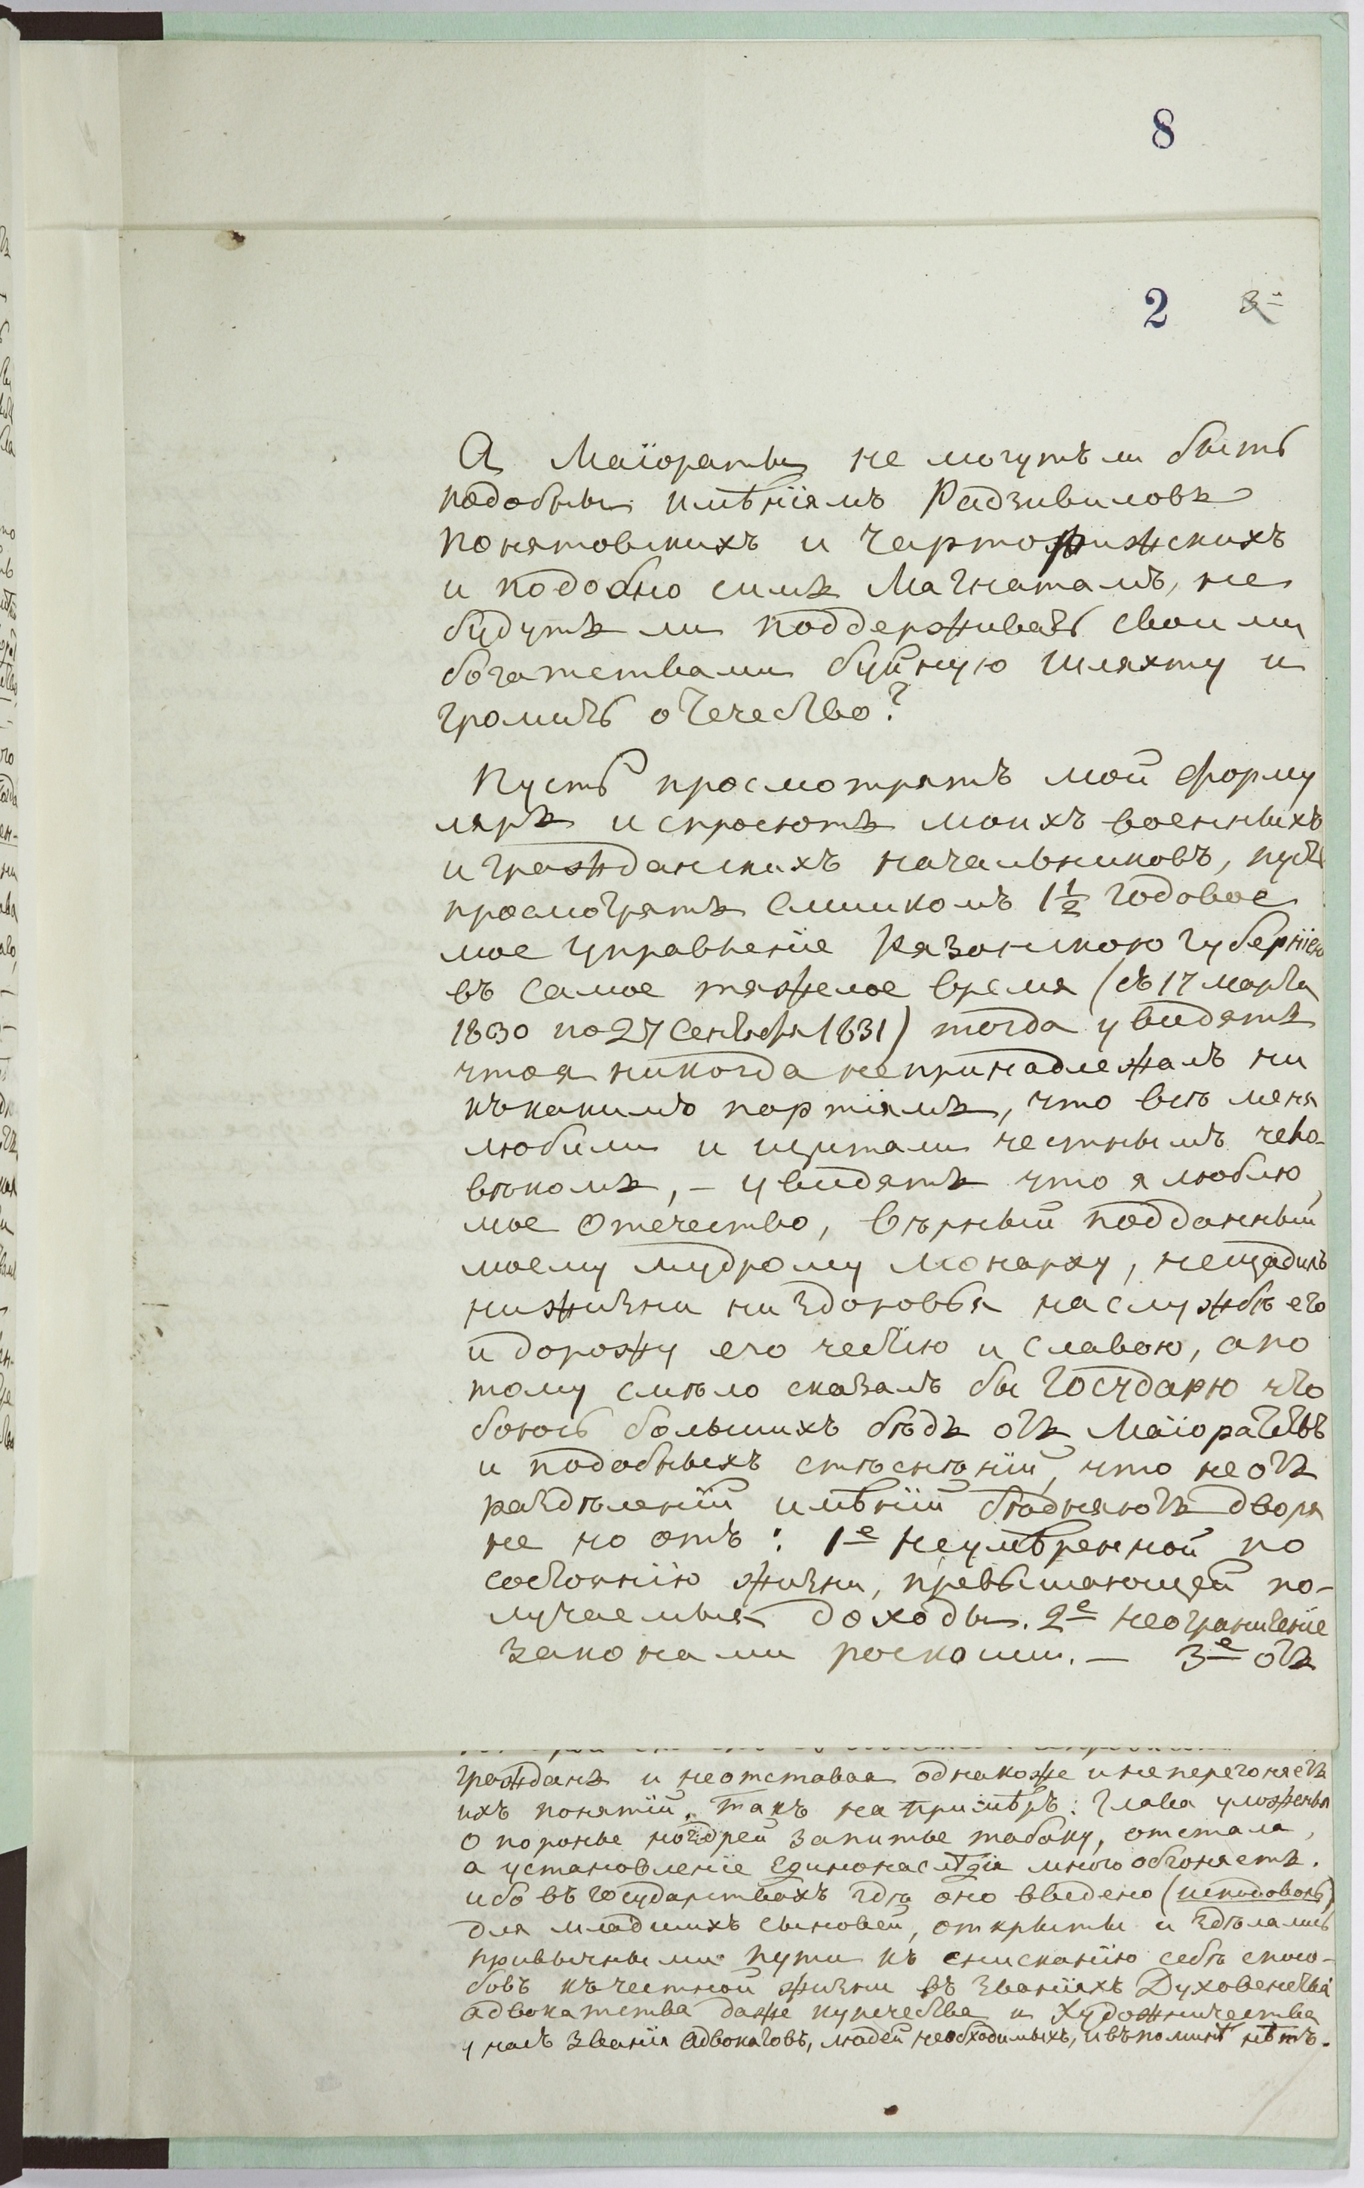 8
2 3-
А Маіораты не могутъ ли быть
подобны имѣніямъ Радзивиловъ
Понятовскихъ и Чарторижскихъ
и подобно симъ Магнатамъ, не
будутъ ли поддерживать своими
богатствами буйную шляхту и
громить отечество?
Пусть просмотрятъ мой форму
ляръ и спросютъ моихъ военныхъ
и гражданскихъ начальниковъ, пусть
просмотрятъ слишкомъ 1½ годовое
мое управленіе Рязанскою губерніею
въ самое тяжелое время (съ 17 марта
1830 по 27 Сентября 1831) тогда увидятъ
что я никогда непринадлежалъ ни
къ какимъ партіямъ, что всѣ меня
любили и щитали честнымъ чело-
вѣкомъ, – увидятъ что я люблю
мое Отечество, вѣрный подданный
моему мудрому монарху, нещадилъ
ни жизни ни здоровья на службѣ его
и дорожу его честію и славою, а по
тому смѣло сказалъ бы Государю что
боюсь большихъ бѣдъ отъ Маіоратствъ
и подобныхъ стѣсненій, что не отъ
раздѣленій имѣній бѣднѣютъ дворя
не но отъ: 1е Неумѣренной по
состоянію жизни, превышающей по-
лучаемыя доходы. 2е неограниченіе
законами роскоши. – 3е отъ
гражданъ и неотставая однакоже и неперегоняетъ
ихъ понятій. Такъ на примѣръ: глава уложенья
о поронье ноздрей запитье табаку, отстала,
а установленіе единонаслѣдія много обгоняетъ.
ибо въ государствахъ гдѣ оно введено (исподоволь)
для младшихъ сыновей, открыты и здѣлались
привычными пути къ снисканію себѣ спосо-
бовъ къ честной жизни въ званіяхъ Духовенства
адвокатства даже купечества и Художничества
у насъ званія Адвокатовъ, людей необходимыхъ, и въ поминѣ нѣтъ.